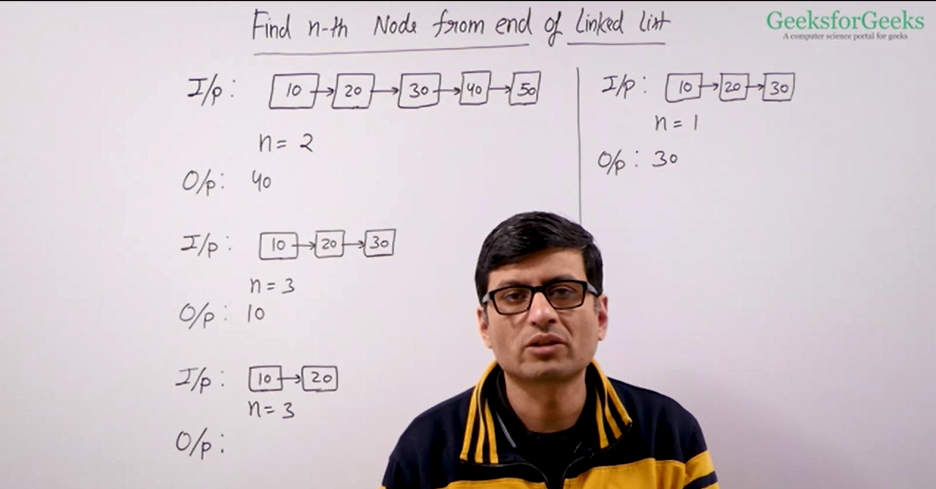 Find n-th Node from end of Linked list
GeeksforGeeks
A computer science portal for geeks
I/p: 10 → 20 → 30 → 40 → 50
n = 2
O/p: 40
I/p: 10 → 20 → 30
n = 1
O/p: 30
I/p: 10 → 20 → 30
n = 3
O/p: 10
I/p: 10 → 20
n = 3
O/p: